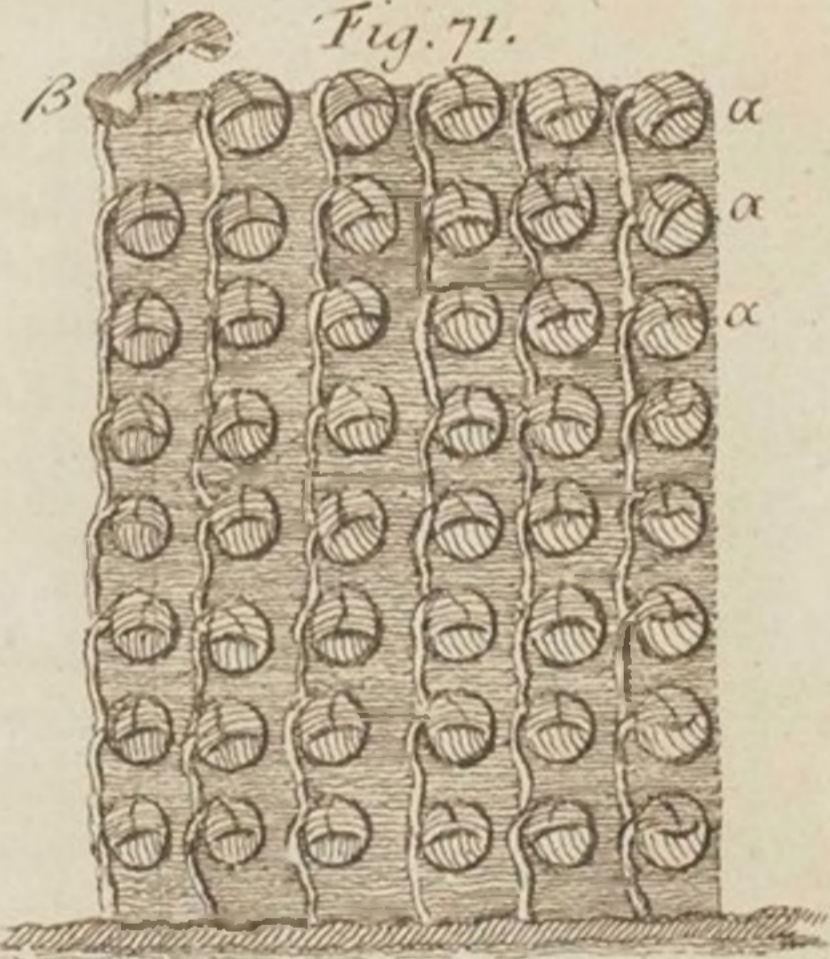 Fig. 71.
β
α
α
α